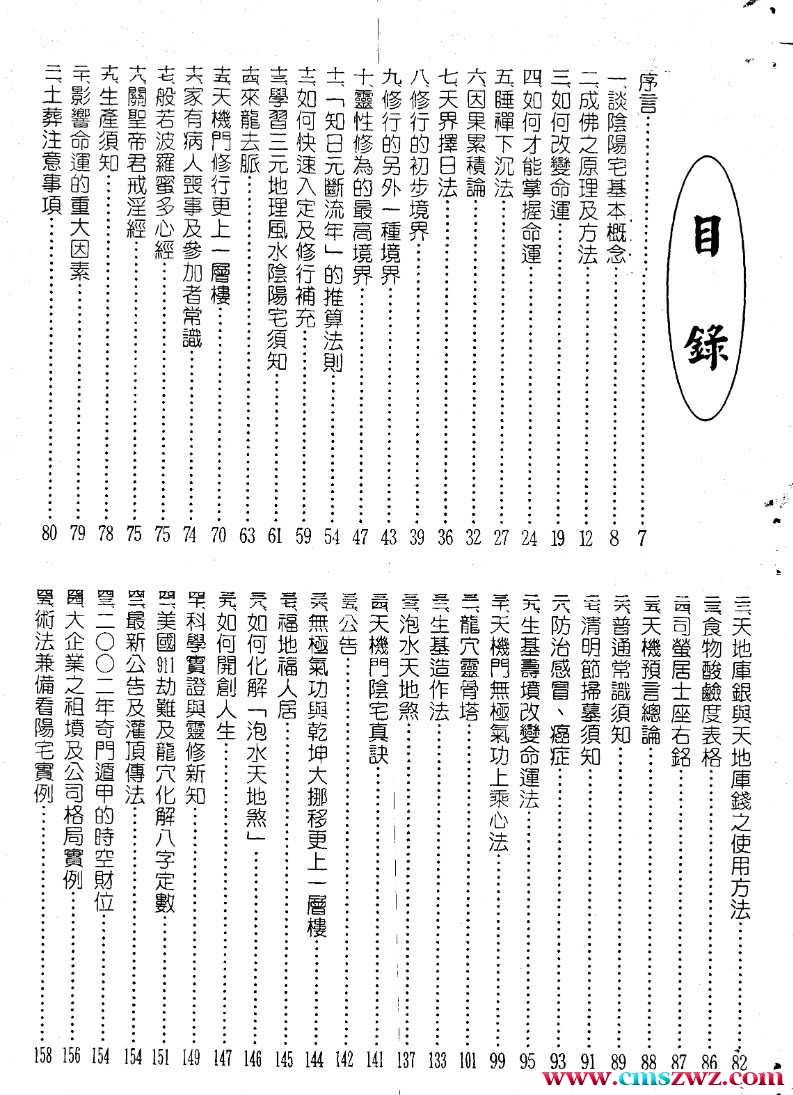 目錄
序言……7
一、談陰陽宅基本概念……8
二、成佛之原理及方法……12
三、如何改變命運……19
四、如何才能掌握命運……24
五、睡禪下沉法……27
六、因果累積論……32
七、天界擇日法……36
八、修行的初步境界……39
九、修行的另外一種境界……43
十、靈性修為的最高境界……47
十一、「知日元斷流年」的推算法則……54
十二、如何快速入定及修行補充……59
十三、學習三元地理風水陰陽宅須知……61
十四、來龍去脈……63
十五、天機門修行更上一層樓……70
十六、家有病人喪事及參加者常識……74
十七、般若波羅蜜多心經……75
十八、關聖帝君戒淫經……75
十九、生產須知……78
二十、影響命運的重大因素……79
二一、土葬注意事項……80
二二、天地庫銀與天地庫錢之使用方法……82
二三、食物酸鹼度表格……86
二四、司螢居士座右銘……87
二五、天機預言總論……88
二六、普通常識須知……89
二七、清明節掃墓須知……91
二八、防治感冒、癌症……93
二九、生基壽墳改變命運法……95
三十、天機門無極氣功上乘心法……99
三一、龍穴靈骨塔……101
三二、生基造作法……133
三三、泡水天地煞……137
三四、天機門陰宅真訣……141
三五、公告……142
三六、無極氣功與乾坤大挪移更上一層樓……144
三七、福地福人居……145
三八、如何化解「泡水天地煞」……146
三九、如何開創人生……147
四十、科學實證與靈修新知……149
四一、美國911劫難及龍穴化解八字定數……151
四二、最新公告及灌頂傳法……154
四三、二〇〇二年奇門遁甲的時空財位……154
四四、大企業之祖墳及公司格局實例……156
四五、術法兼備看陽宅實例……158
www.cmszwz.com